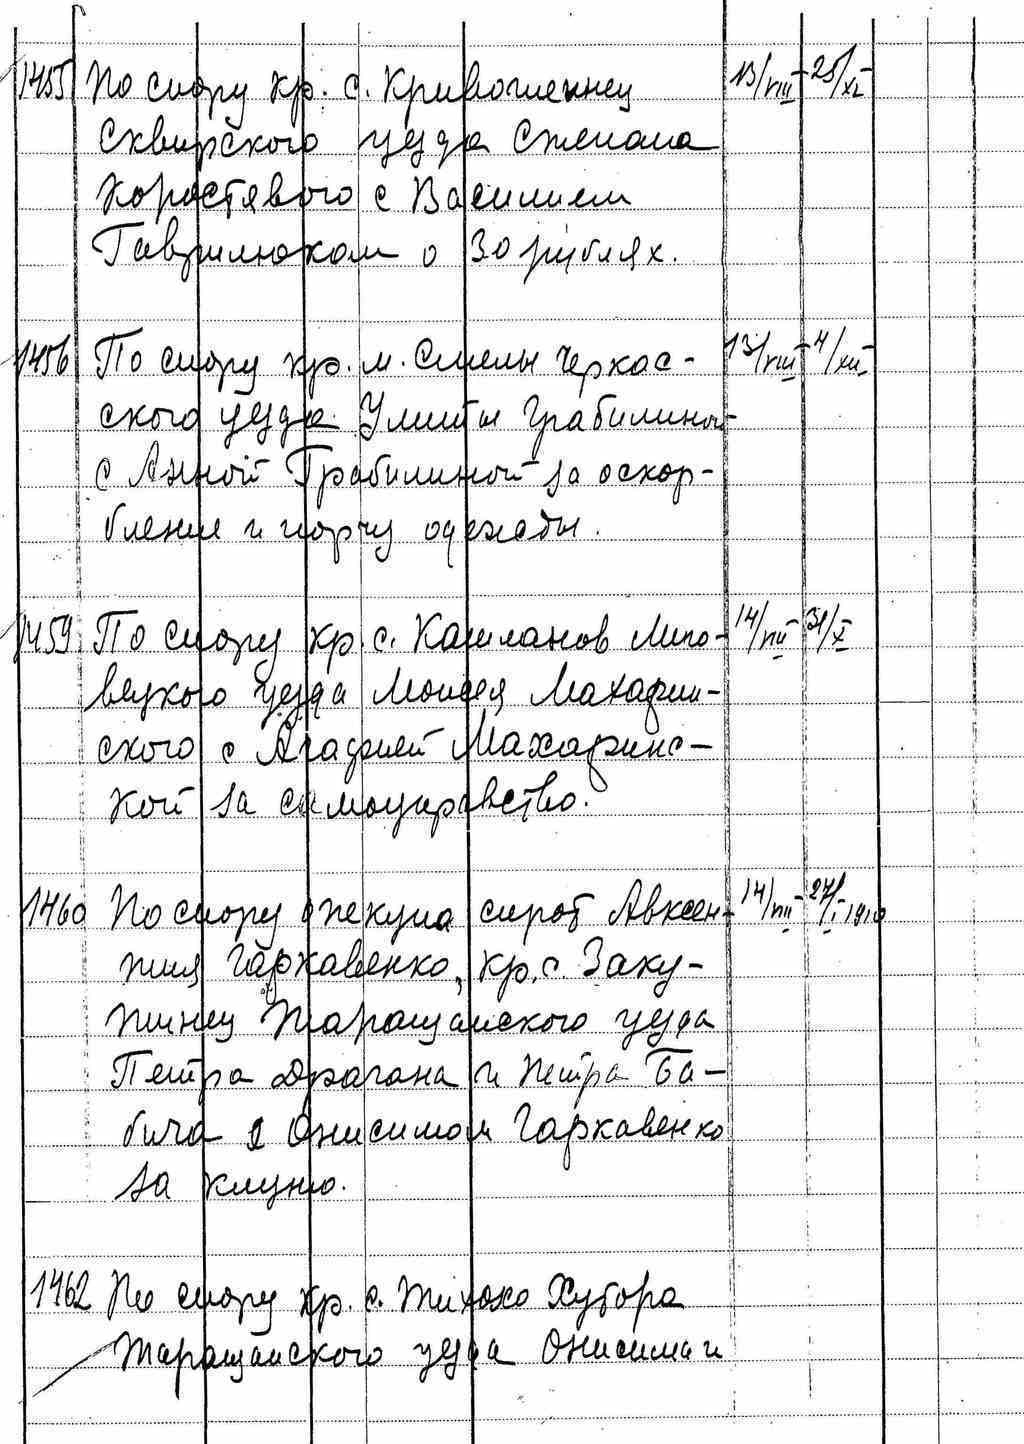 1455 По спору кр. с. Кривошеинец 13/VIII 25/XI
Сквирского уезда Степана
Коростявого с Василием
Гаврилюком о 30 рублях.
1456 По спору кр. м. Смелы Черкас- 13/VIII 4/XII
ского уезда Улиты Грабилиной
с Анной Грабилиной за оскор-
бление и порчу одежды.
1459 По спору кр. с. Кашланов Липо- 14/VIII 31/X
вецкого уезда Моисея Махарин-
ского с Агафией Махаринс-
кой за самоуправство.
1460 По спору опекуна сирот Авксен- 14/VIII 27/I 1910
тия Гаркавенко, кр. с. Заку-
тинец Таращанского уезда
Петра Драгана и Петра Ба-
бича с Онисимом Гаркавенко
за клуню.
1462 По спору кр. с. Тихого Хутора
Таращанского уезда Онисима и